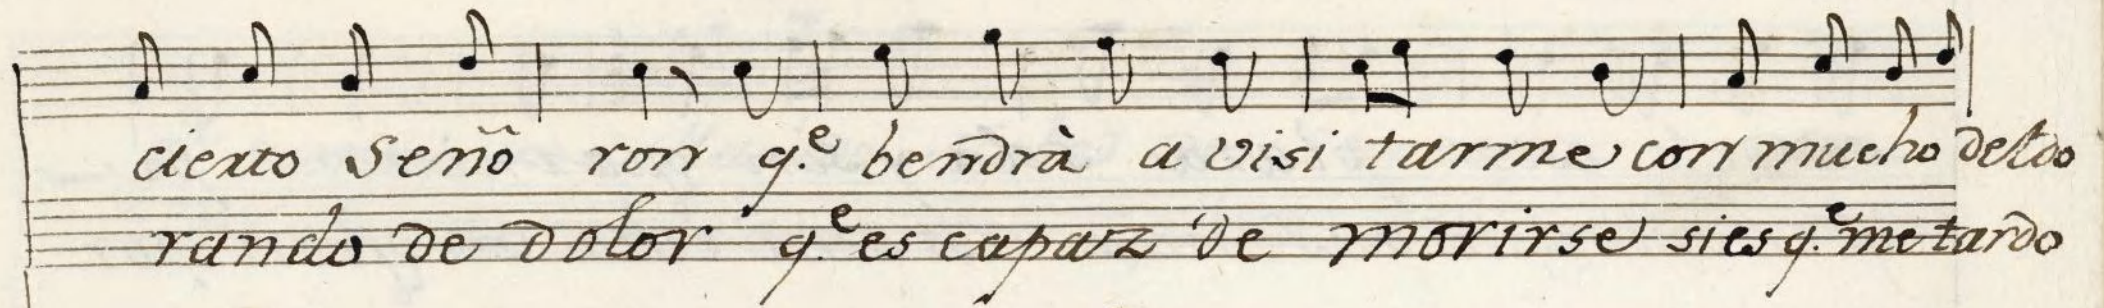 cierto Seño ron q.e bendrà a visi tarme con mucho
rando de dolor q.e es capaz de morirse si es q.e me tardo